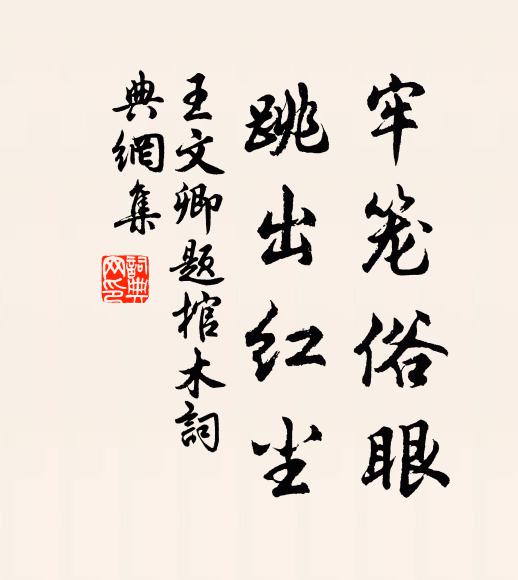 牢笼俗眼
跳出红尘
王文卿题棺木詞
典網集
詞典网印